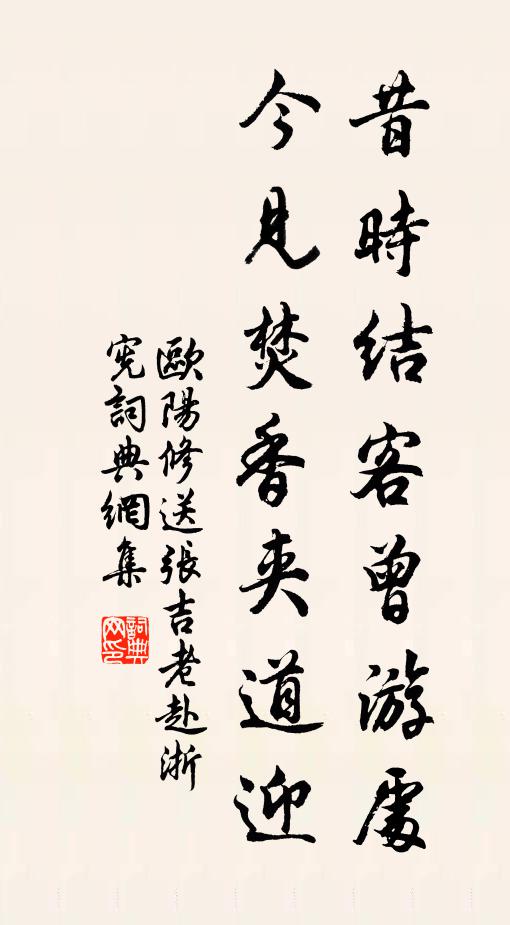 昔時結客曾游處
今見焚香夾道迎
歐陽修送張吉老赴浙
宪詞典網集
詞典网印